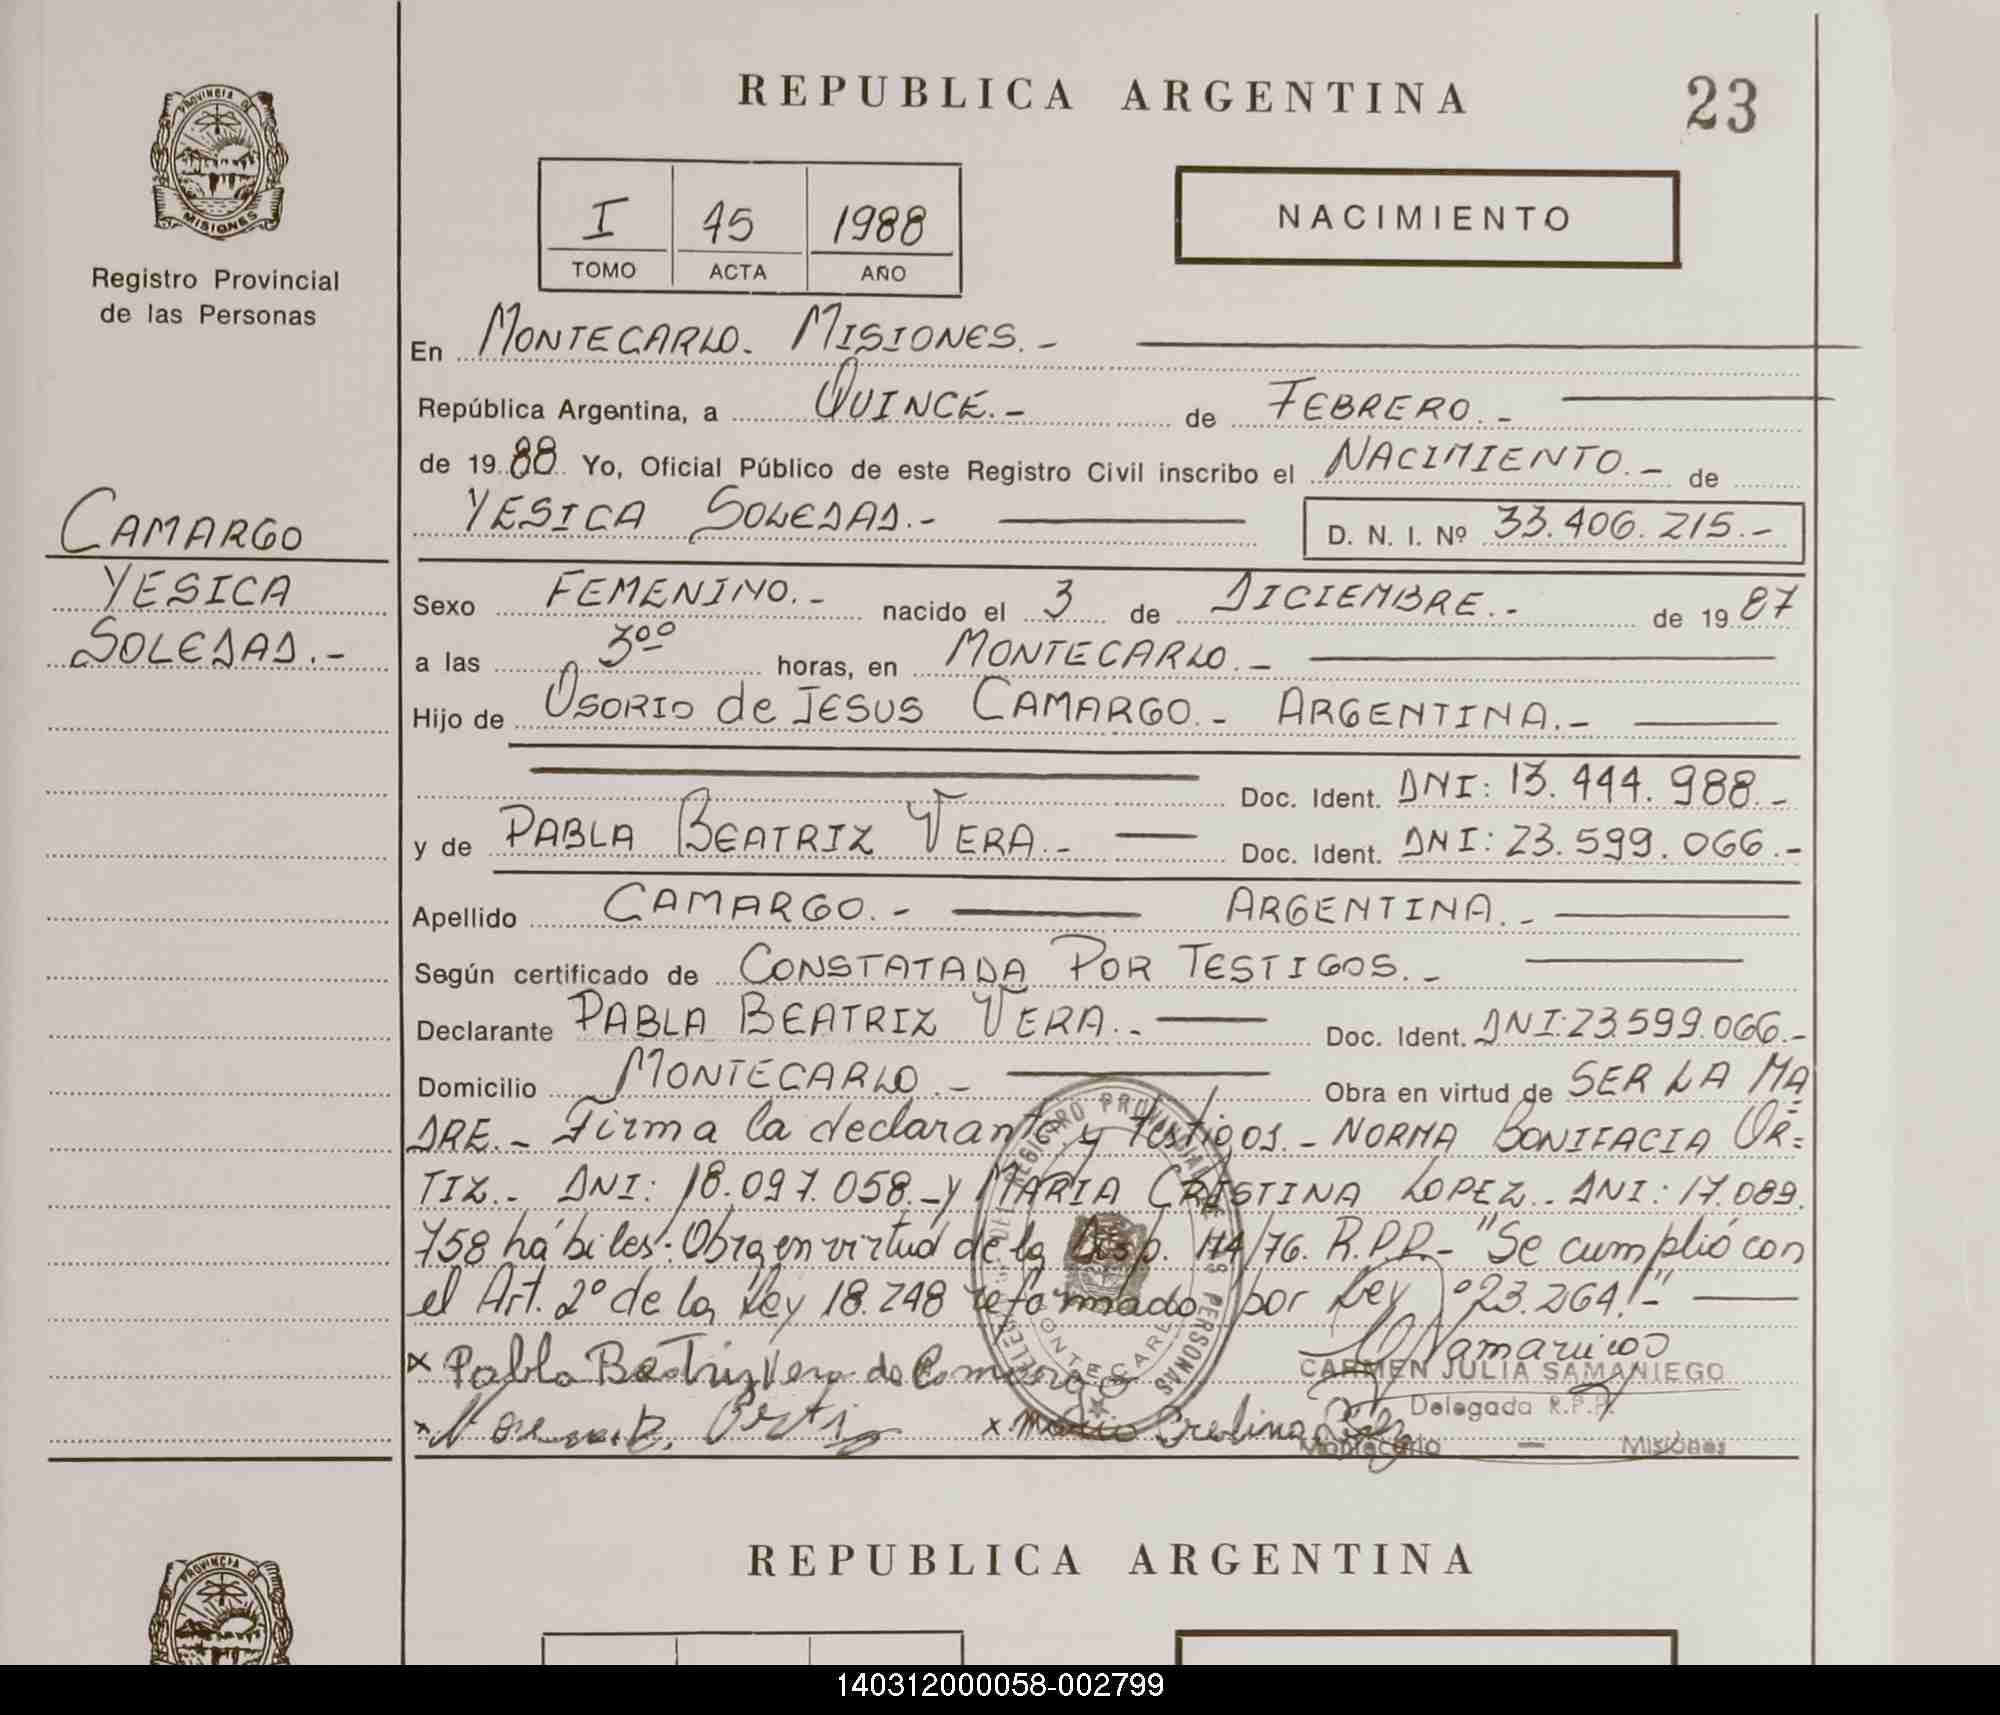 REPUBLICA ARGENTINA
23
PROVINCIA DE
MISIONES
Registro Provincial
de las Personas
I 45 1988
TOMO ACTA AÑO
NACIMIENTO
En MONTECARLO. MISIONES.-
República Argentina, a QUINCE.- de FEBRERO.-
de 1988 Yo, Oficial Público de este Registro Civil inscribo el NACIMIENTO.- de
YESICA SOLEDAD.- D. N. I. Nº 33.406.215.-
CAMARGO
YESICA
SOLEDAD.-
Sexo FEMENINO.- nacido el 3 de DICIEMBRE.- de 1987
a las 3ºº horas, en MONTECARLO.-
Hijo de OSORIO de JESUS CAMARGO.- ARGENTINA.-
Doc. Ident. DNI: 13.444.988.-
y de PABLA BEATRIZ VERA.- Doc. Ident. DNI: 23.599.066.-
Apellido CAMARGO.- ARGENTINA.-
Según certificado de CONSTATADA POR TESTIGOS.-
Declarante PABLA BEATRIZ VERA.- Doc. Ident. DNI:23.599.066.-
Domicilio MONTECARLO.- Obra en virtud de SER LA MA
DRE.- Firma la declarante y testigos.- NORMA BONIFACIA OR=
TIZ.- DNI: 18.097.058.- y MARIA CRISTINA LOPEZ.- DNI: 17.089.
758 hábiles: Obra en virtud de la Disp. 114/76. R.P.P.- "Se cumplió con
el Art. 2º de la Ley 18.248 reformado por Ley º23.264!-"
x Pabla Beatriz Vera de Camargo
CARMEN JULIA SAMANIEGO
Delegada R.P.P.
Montecarlo - Misiones
x Norma B. Ortiz x Maria Cristina
REGISTRO PROVINCIAL DE LAS PERSONAS
MONTECARLO
REPUBLICA ARGENTINA
PROVINCIA DE
140312000058-002799